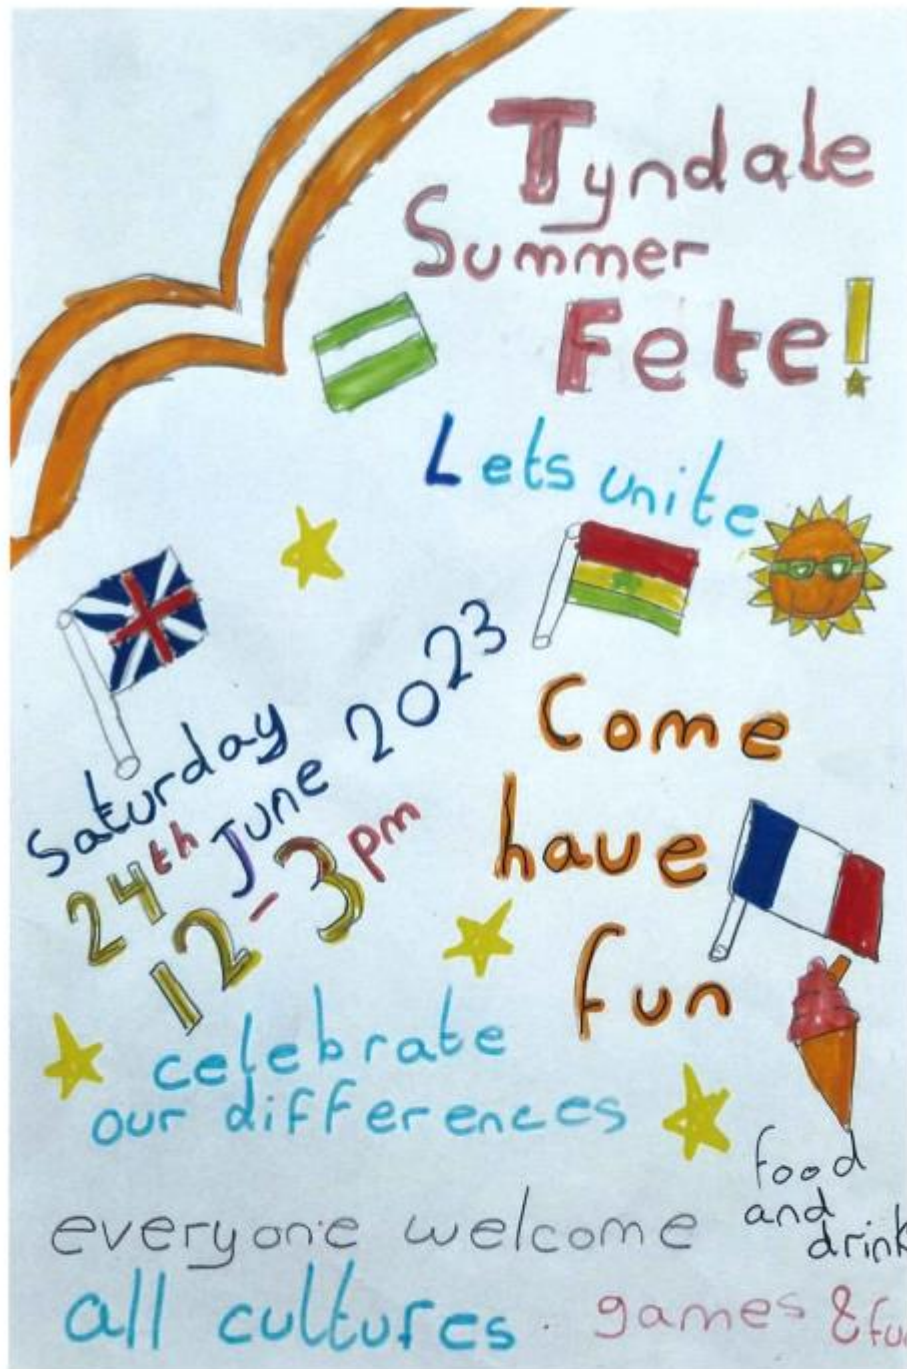 Tyndale
Summer
Fete!
Lets unite
Saturday
24th June 2023
12-3pm
Come
have
fun
celebrate
our differences
food
and
drink
everyone welcome
all cultures.
games & fun